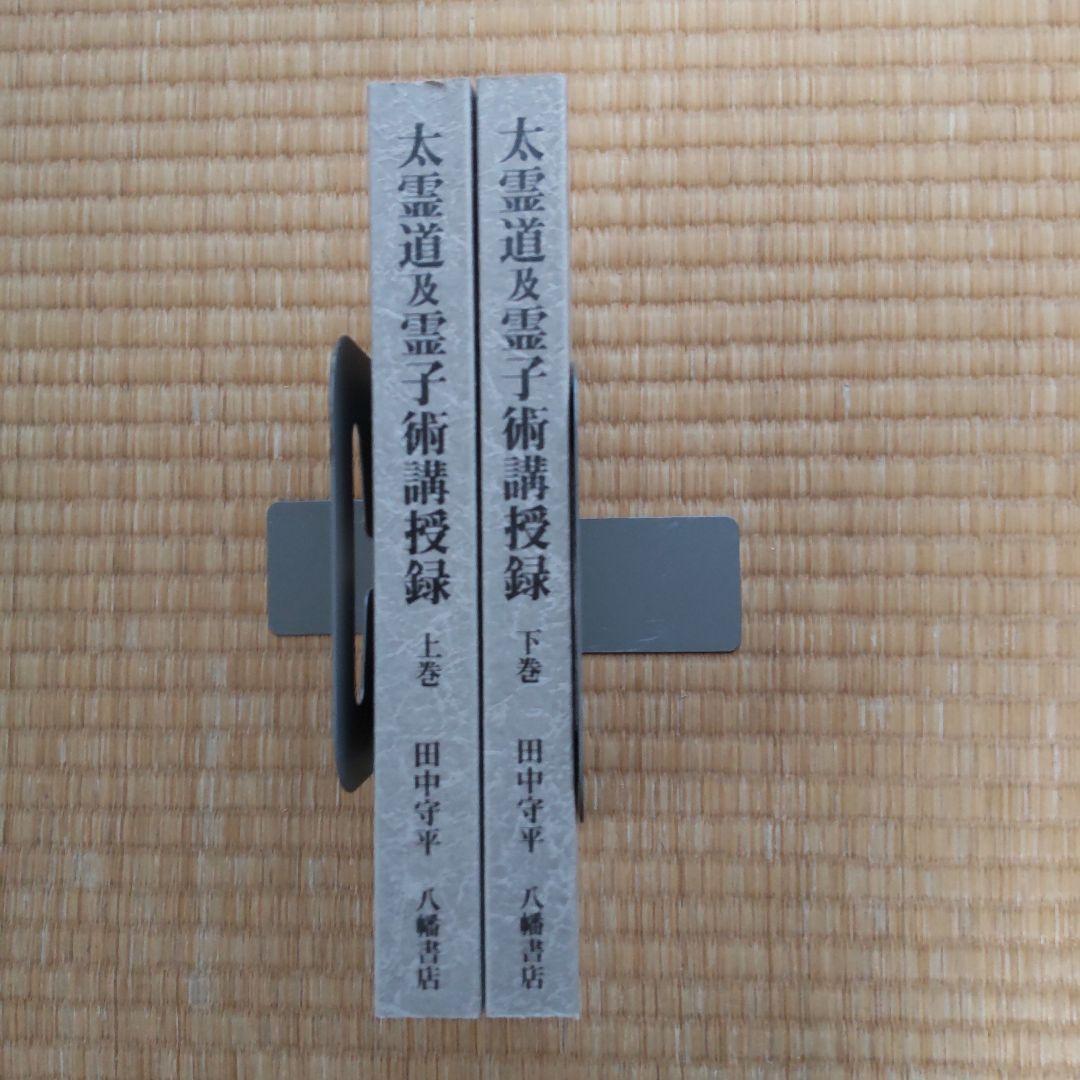 太霊道及霊子術講授録 上巻 田中守平 八幡書店
太霊道及霊子術講授録 下巻 田中守平 八幡書店